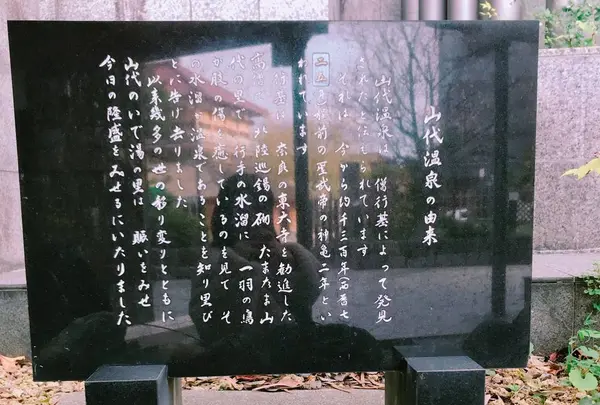 山代温泉の由来
山代温泉は 僧行基によって発見
されたと伝えられています
それは 今から約千三百年(西暦七
二五)も前の聖武帝の神亀二年とい
われています
行基が 奈良の東大寺を勧進した
北陸巡錫の砌 たまたま山
代の里で 行手の水溜に 一羽の烏
が股の傷を癒しているのを見て そ
の水溜が温泉であることを知り里び
とに告げ去りました
以来幾多の世の移り変りとともに
山代のいで湯の里は 賑いをみせ
今日の隆盛をみせるにいたりました